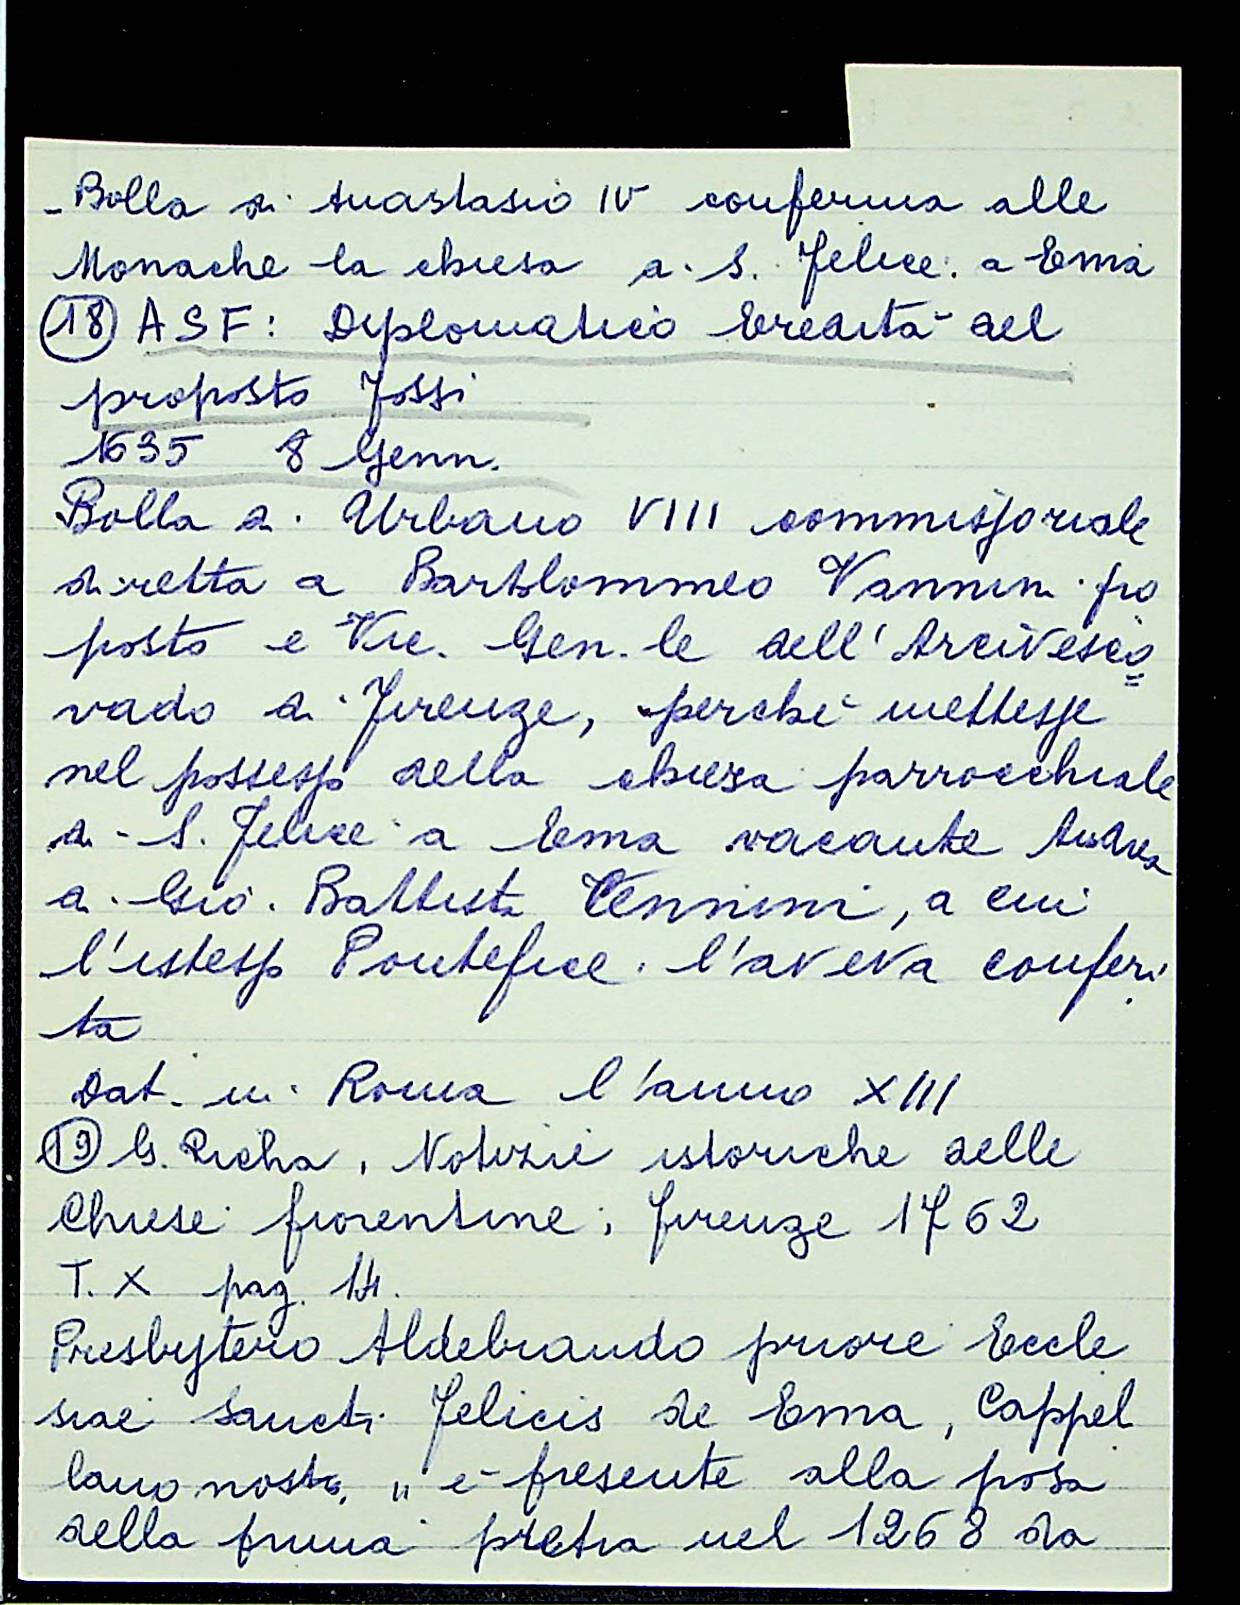 - Bolla di Anastasio IV conferma alle
Monache la chiesa di S. Felice a Ema
(18) ASF: Diplomatico Eredità del
proposto Fossi
1635 8 Genn.
Bolla di Urbano VIII commissoriale
diretta a Bartolommeo Vannini pro
posto e Vic. Gen.le dell'Arcivesco
vado di Firenze, perchè mettesse
nel possesso della chiesa parrocchiale
di S. Felice a Ema vacante Andrea
di Gio. Battista Vennini, a cui
l'istesso Pontefice l'aveva conferi
ta
Dat. in Roma l'anno XIII
(19) G. Richa, Notizie istoriche delle
Chiese fiorentine, Firenze 1762
T. X pag. 14.
Presbytero Aldebrando priore Eccle
siae Sancti Felicis de Ema, Cappel
lano nostro, " è presente alla posa
della prima pietra nel 1268 da